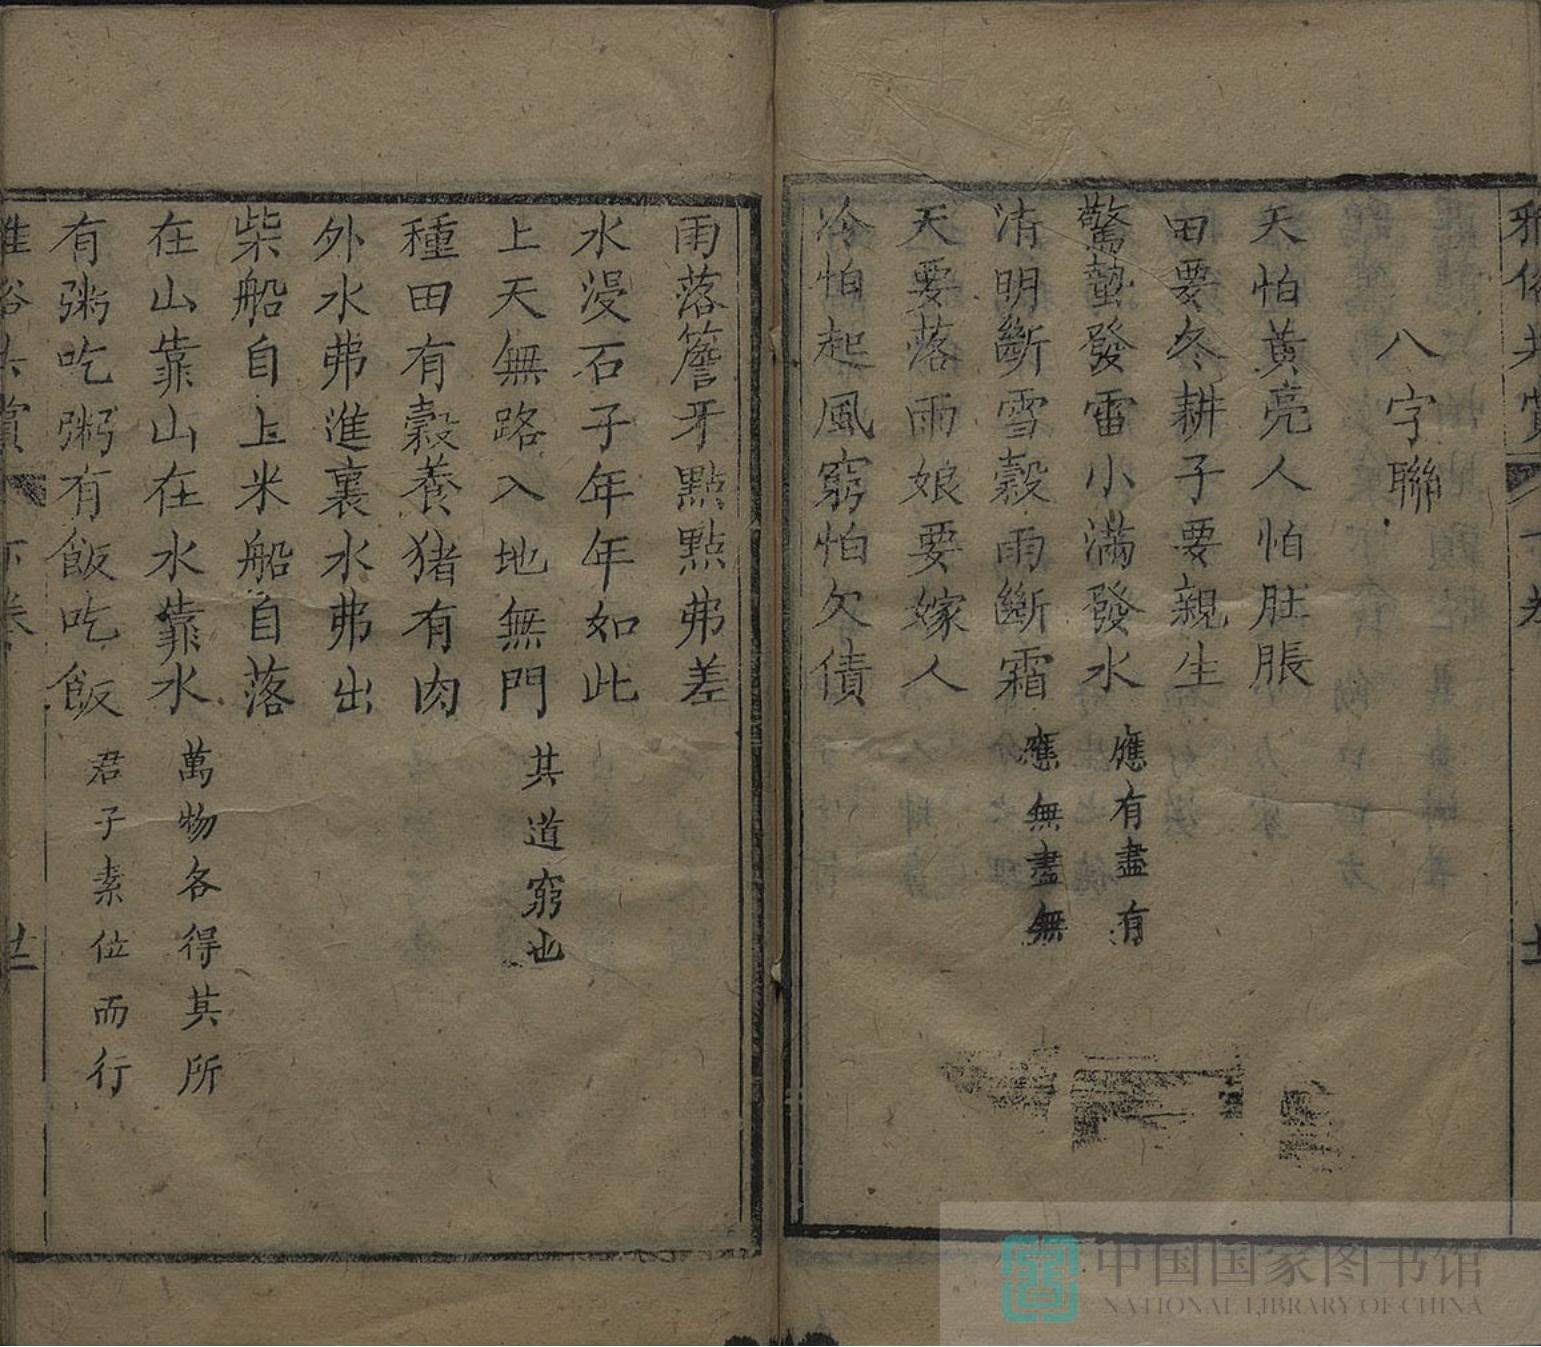 八字聯
天怕黃亮人怕肚脹
田要冬耕子要親生
驚蟄發雷小滿發水 應有盡有
清明斷雪穀雨斷霜 應無盡無
天要落雨娘要嫁人
冷怕起風窮怕欠債
雨落簷牙點點弗差
水漫石子年年如此
上天無路入地無門 其道窮也
種田有穀養猪有肉
外水弗進裏水弗出
柴船自上米船自落
在山靠山在水靠水 萬物各得其所
有粥吃粥有飯吃飯 君子素位而行
中国国家图书馆
NATIONAL LIBRARY OF CHINA